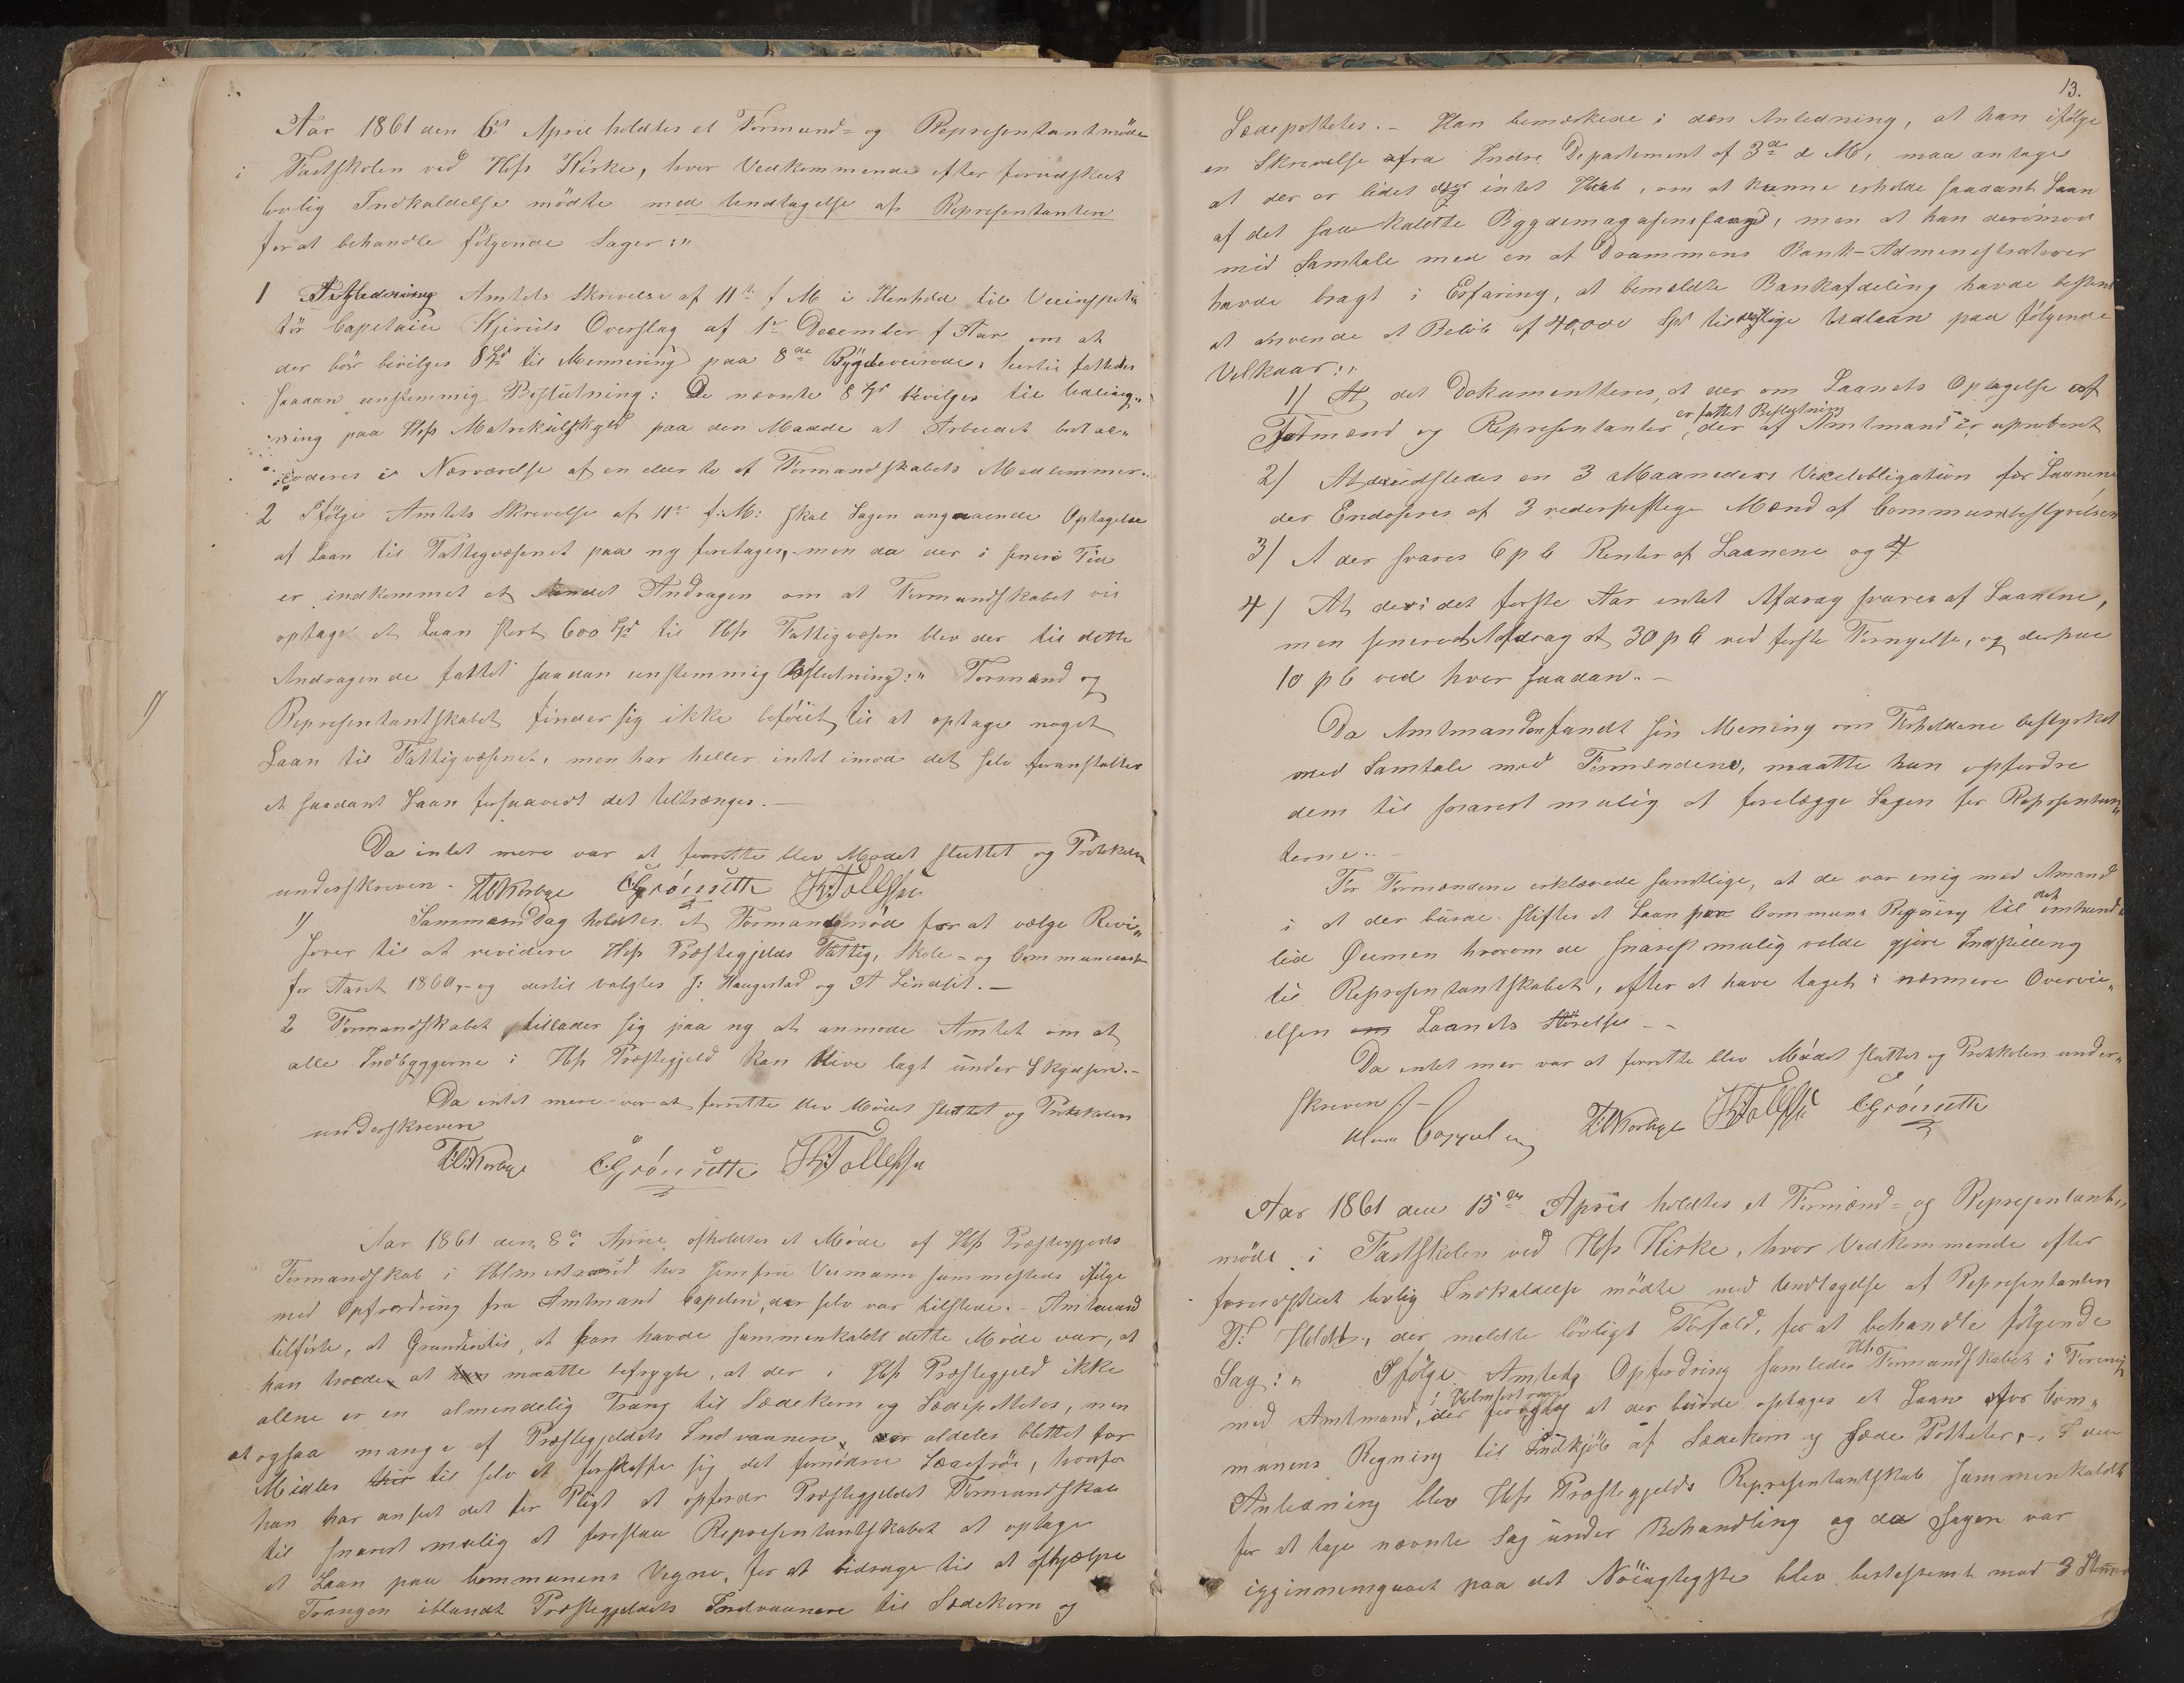 Aar 1861 den 6te April holdtes et Formand- og Representantmøde
i Fastskolen ved Hofs Kirke, hvor Vedkommende efter forudskeet
lovlig Indkaldelse mødte med Undtagelse af Representanten
for at behandle følgende Sager:"
1 Amtets Skrivelse af 11te f M i Henhold til Veiinspek
tør Capitain Overslag af 1ste December f Aar om at
der bør bevilges 8 Spd til paa 8de Bygdeveirode, hertil fattedes
saadan eenstemmig Beslutning: De nævnte 8 Spd bevilges til Udlig"
ning paa Hofs Matrikulskyld paa den Maade at Arbeidet
i Nærværelse af en eller to af Formandskabets Medlemmer.
2 Ifølge Amtets Skrivelse af 11te f: M: skal Sagen angaaende Optagelse
af Laan til Fattigvæsenet paa ny foretages, men da der i senere Tid
er indkommet et Andragen om at Formandskabet vil
optage et Laan stort 600 Spd til Hofs Fattigvæsen blev der til dette
Andragende fattet saadan eenstemmig Beslutning:" Formand og
Representantskabet finder sig ikke beføiet til at optage noget
Laan til Fattigvæsenet, men har heller intet imod det selv foranstalter
et saadant Laan forsaavidt det tiltrænges.—
Da intet mere var at forrette blev Mødet sluttet og Protokollen
underskreven. C Grønsetth H: Tollefsen
1) Sammendag holdtes et Formandsmød for at vælge Revi"
sorer til at revidere Hofs Præstegjelds Fattig, Skole- og
for Aaret 1860,- og dertil valgtes J: Haugestad og A Lindsit.—
2 Formandskabet tillader sig paa ny at anmode Amtet om at
alle Indbyggerne i Hofs Præstegjeld kan blive lagt under Skydsen.-
Da intet mere var at forrette blev Mødet sluttet og Protokolen
underskreven
C Grønsetth H: Tollefsen
Aar 1861 den 8de April afholdtes et Møde af Hofs Præstegjelds
Formandskab i Holmestrand hos Jomfru sammesteds ifølge
med Opfordring fra Amtmand Cappelen, der selv var tilstede.- Amtmand
tilførte, at Grunden til, at han havde sammenkaldt dette Møde var, at
han troede at han maatte befrygte, at der i Hofs Præstegjeld ikke
allene er en almendelig Trang til Sædekorn og Sædepotteter, men
at ogsaa mange af Præstegjeldets Indvaanere, var aldeles blottet for
Midler til selv at forskaffe sig det fornødne Sædefrø, hvorfor
han har anseet det for Pligt at opfordre Præstegjeldet Formandskab
til snarest mulig at forestaa Representantskabet at optage
et Laan paa Communens Vegne, for at bidrage til at afhjælpe
Trangen iblandt Præstegjeldets Indvaanere til Sædekorn og
13.
Sædepotteter.- Han bemærkede i den Anledning, at han ifølge
en Skrivelse fra Indre Departement af 3de d M, maa antage
at der er lidet eller intet Haab, om at kunne erholde saadant Laan
af det saa kaldte Bygdemagasinsfond, men at han derimod
med Samtale med en af Drammens Bank-Admenestratorer
havde bragt i Erfaring, at bemeldte Bankafdeling havde bestemt
at anvende et Beløb af 40,000 Spd til slige Udlaan paa følgende
Vilkaar:"
1) At det Dokumentteres, at der om Laanets Optagelse af
Formænd og Representanter, er fattet Beslutning der af Amtmand er aproberet
2) At udstedes en 3 Maaneders Vexelobligation for Laanene
der Endoseres af 3 vederheftige Mænd af Communebestyrelsen
3) At der svares 6 p C Renter af Laanene og 4
4) At der i det første Aar intet Afdrag svares af Laanene,
men senere et Afdrag af 30 p C ved første Fornyelse, og derpaa
10 p C ved hver saadan.-
Da Amtmanden fandt sin Mening om Forholdene bestyrket
med Samtale med Formændene, maatte han opfordre
dem til snarest mulig at forelægge Sagen for Representan"
terne..-
For Formændene erklærede samtlige, at de var enig med Amand
i at der burde stiftes et Laan paa Communs Regning til det omhand"
lede Øiemen hvorom de snarest mulig vilde gjøre Indstilling
til Representantskabet, efter at have taget i nærmere Overvei"
elsen om Laanets Størelse - -
Da intet mer var at forrette blev Mødet sluttet og Protokolen under"
skreven
Cappelen H: Tollefsen C Grønsetth
Aar 1861 den 15de April holdtes et Formænd- og Representant"
møde i Fastskolen ved Hofs Kirke, hvor Vedkommende efter
forudskeet lovlig Indkaldelse mødte med Undtagelse af Representanten
T: Holdt, der meldte lovligt Forfald, for at behandle følgende
Sag:" Ifølge Amtets Opfordring samledes Hofs Formandskabet i Forening
med Amtmand, i Holmestrand der at der burde optages et Laan for Com"
munens Regning til Indkjøb af Sædekorn og Sæde Potteter,-. I den
Anledning blev Hofs Præstegjelds Representantskab sammenkaldt
for at tage nævnte Sag under Behandling og da Sagen var
igjennemgaaet paa det Nøiagtigste blev bestestemt med 3 Stemmer